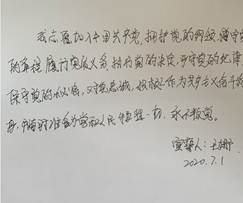 我志愿加入中国共产党，拥护党的纲领，遵守党
的章程，履行党员义务，执行党的决定，严守党的纪律，
保守党的秘密，对党忠诚，积极工作，为共产主义奋斗终
身，随时准备为党和人民牺牲一切，永不叛党。
宣誓人：王
2020.7.1